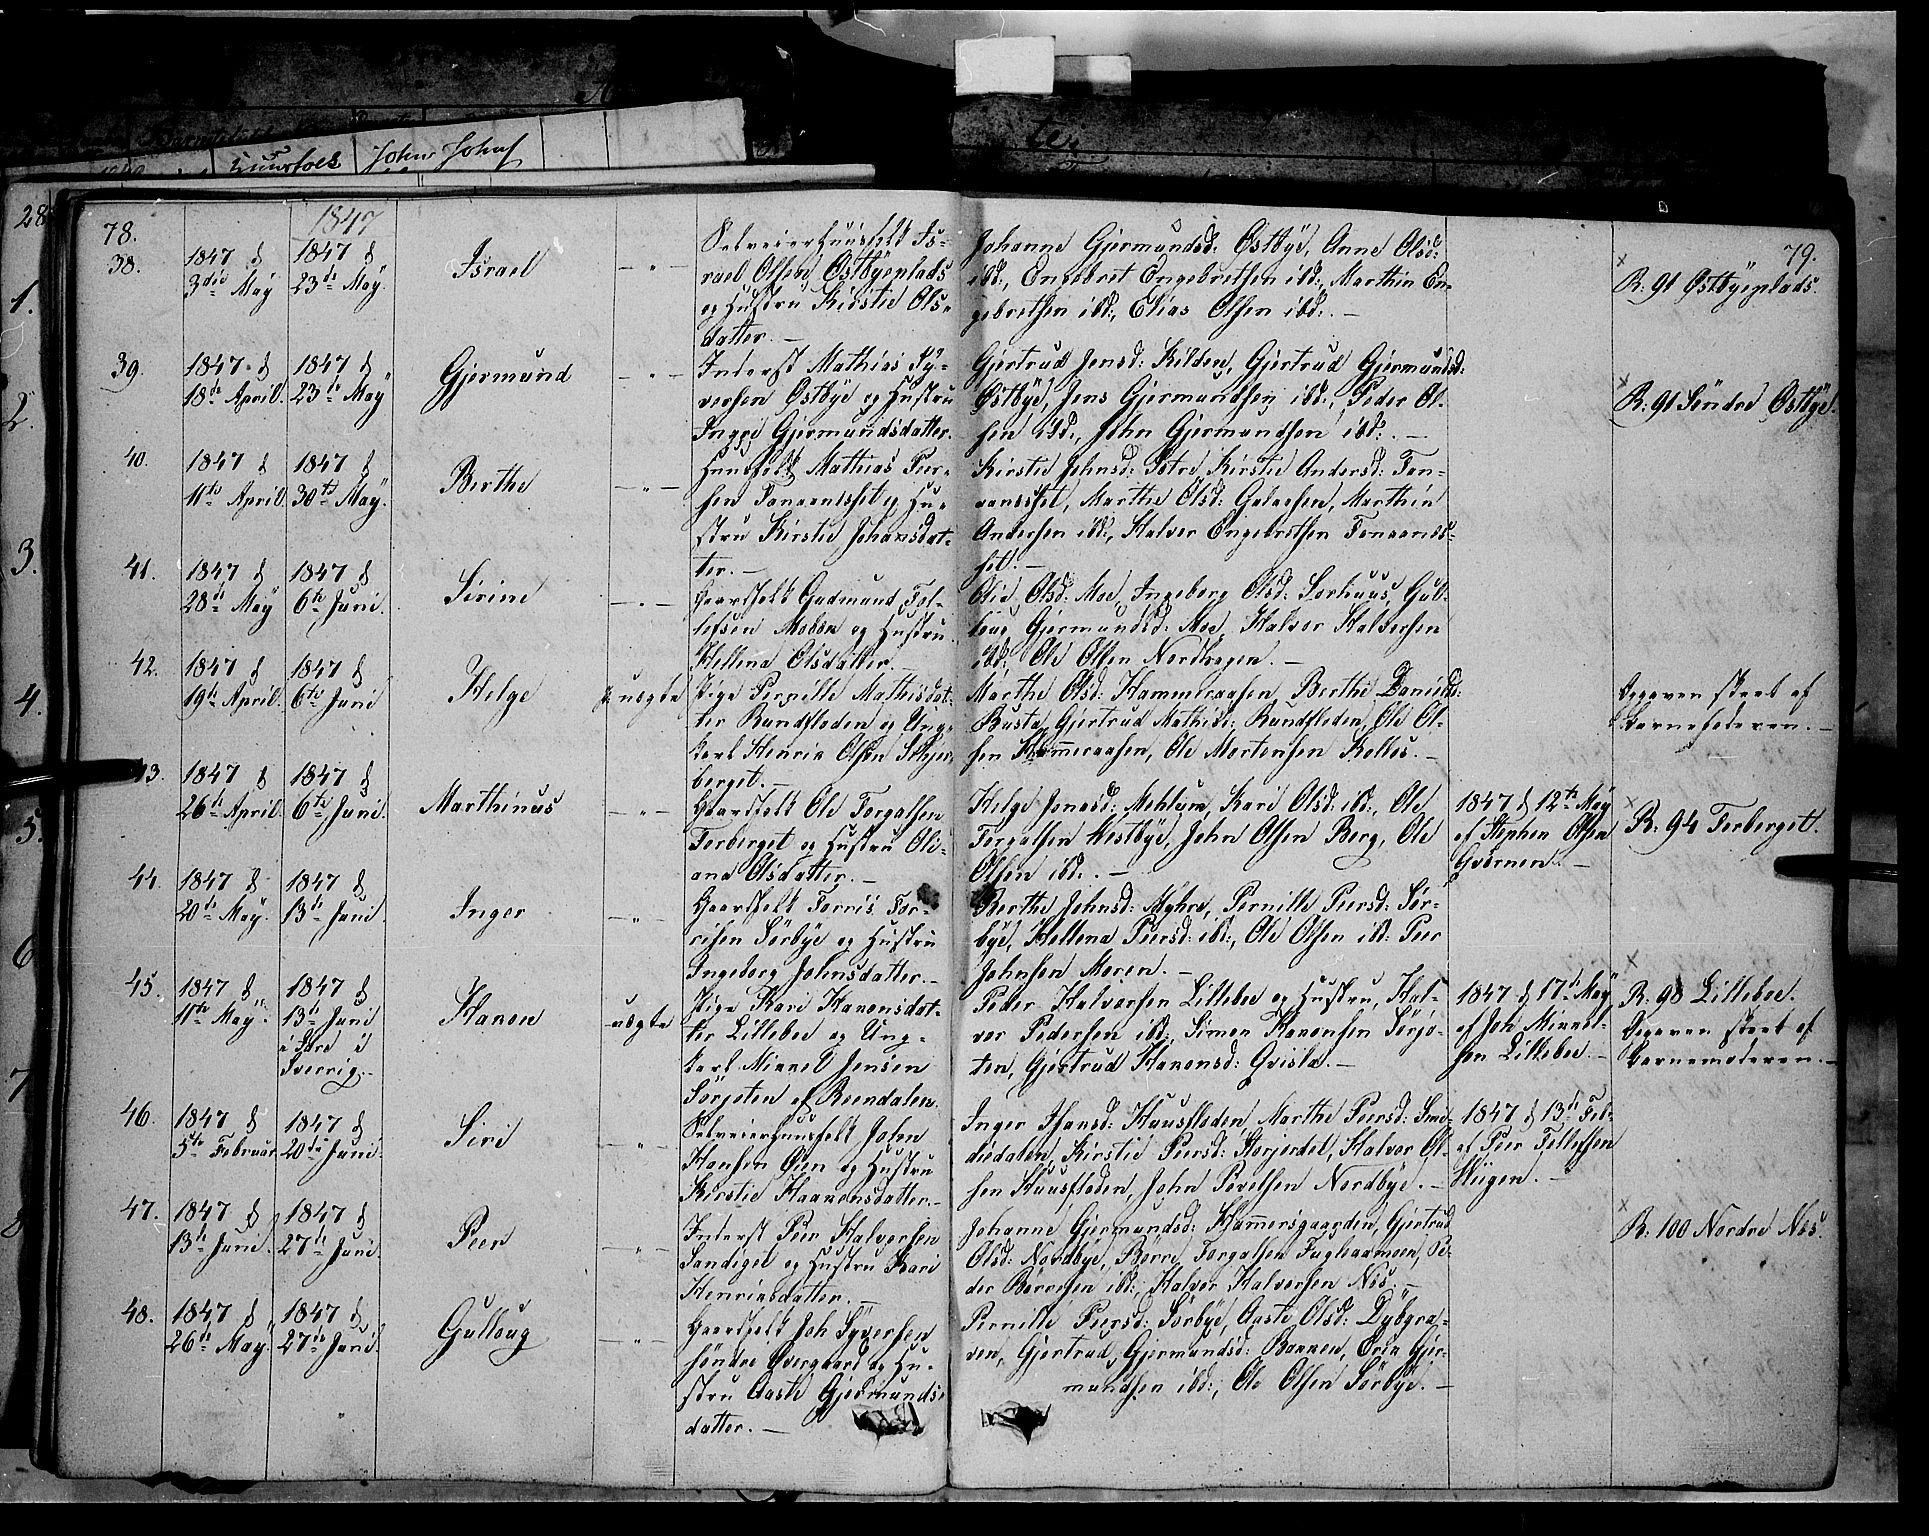 28
1.
2.
3.
4.
5.
6
7
8
John Johns
78.
1847
38.
1847 d
3die May
1847 d
23de May
Israel
— " —
Selveierhuusfolk Is-
rael Olsen Østbyeplads
og Hustru Kirstie Ols-
datter. —
Johanne Gjermundsd: Østbye, Anne Olsd:
ibd:, Engebret Engebrethsen ibd:, Marthin En-
gebrethsen ibd:, Elias Olsen ibd:. —
79.
x
R: 91 Østbyeplads.
39.
1847 d
18de April.
1847 d
23de May
Gjermund
— " —
Inderst Mathias Sy-
versen Østbye og Hustru
Inger Gjermundsdatter.
Gjertrud Jensd: Kilden, Gjertrud Gjermundsd:
Østbye, Jens Gjermundsen ibd:, Peder Ol-
sen ibd:, John Gjermundsen ibd:. —
x
R: 91 Søndre Østbye.
40.
1847 d
11te April.
1847 d
30te May.
Berthe
— " —
Huusfolk Mathias Peer-
sen Tanaandset og Hu-
stru Kirstie Johansdat-
ter. —
Kirstie Johnsd: Sætre, Kirstie Andersd: Tan-
aandset, Marthe Olsd: Galaasen, Marthin
Andersen ibd:, Halvor Engebrethsen Tanaands-
set. —
41.
1847 d
28de May
1847 d
6te Juni.
Sirine
— " —
Gaardfolk Gudmund Tol-
lefsen Moben og Hustru
Hellena Olsdatter. —
Olia Olsd: Moe, Ingeborg Olsd: Sorhuus, Gul-
loug Gjermundsd: Moe, Halvor Halvorsen
ibd:, Ole Olsen Nordhagen. —
42.
1847 d
19de April.
1847 d
6te Juni
Helge
uægte
Pige Pernille Mathisdat-
ter Rundfloden og Ung-
karl Henrik Olsen Skjer-
berget. —
Marthe Olsd: Hammeraasen, Berthe Danielsd:
Busta, Gjertrud Mathisd: Rundfloden, Ole Ol-
sen Hammeraasen, Ole Mortensen Kolles. —
Opgaven skeet af
Barnefaderen. —
43.
1847 d
26de April.
1847 d
6te Juni.
Marthinus
— " —
Gaardfolk Ole Torgalsen
Torberget og Hustru Oli-
ana Olsdatter. —
Helge Jonasd: Mehlum, Kari Olsd: ibd:, Ole
Torgalsen Westbye, John Olsen Berg, Ole
Olsen ibd:. —
1847 d 12te May
af Stephen Olsen
Gvernen. —
x
R: 94 Torberget.
44.
1847 d
20de May.
1847 d
13de Juni.
Inger
— " —
Gaardfolk Torris Tor-
risen Sørbye og Hustru
Ingeborg Johnsdatter. —
Berthe Johnsd: Myhre, Pernille Peersd: Sør-
bye, Hellena Peersd: ibd:, Ole Olsen ibd: Peer
Johnsen Moren. —
45.
1847 d
11te May.
1847 d
13de Juni
i Sverrig. —
Hanon
uægte
Pige Kari Hanonsdat-
ter Lilleboe og Ung-
karl Minnel Jensen
Sørjoten af Reendalen.
Peder Halvorsen Lilleboe og Hustru, Hal-
vor Pedersen ibd:, Simon Hanonsen Sørjo-
ten, Gjertrud Hanonsd: Qvisla. —
1847 d 17de May
af Joh: Minnel-
sen Lilleboe. —
x
R: 98 Lilleboe.
Opgaven skeet af
Barnemoderen. —
46.
1847 d
5te Februar
1847 d
20de Juni.
Siri
— " —
Selveierhuusfolk John
Hansen Øien og Hustru
Kirstie Haavensdatter. —
Inger Hansd: Huusfloden, Marthe Peersd: Sme-
diedalen, Kirstie Peersd: Storjordet, Halvor Ol-
sen Huusfloden, John Povelsen Nordbye. —
1847 d 13de Feb:
af Peer Tollefsen
Wiigen. —
47.
1847 d
13de Juni.
1847 d
27de Juni.
Peer
— " —
Inderst Peer Halvorsen
Sandiget og Hustru Kari
Henriksdatter. —
Johanne Gjermundsd: Hammersgaarden, Gjertrud
Olsd: Nordbye, Børre Torgalsen Fugleaamoen, Pe-
der Børresen ibd:, Halvor Halvorsen Nes. —
x
R: 100 Nordre Nes.
48.
1847 d
26de May
1847 d
27de Juni.
Gulloug
— " —
Gaardfolk Joh: Syversen
søndre Overgaard og Hu-
stru Aaste Gjermunds-
datter. —
Pernille Peersd: Sørbye, Aaste Olsd: Dybgra-
ven, Gjertrud Gjermundsd: Bakken, Gjer-
mundsen ibd:, Ole Olsen Sørbye. —